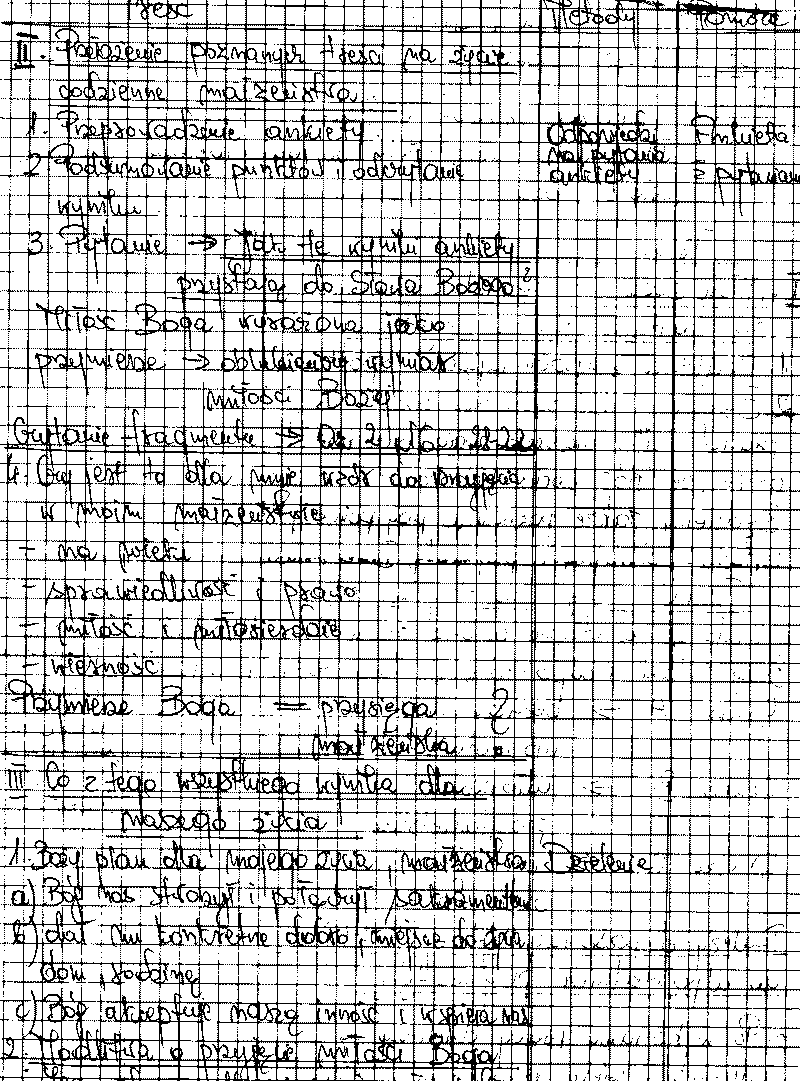 Treść Metody Pomoce
II. Przełożenie poznanych treści na życie
codzienne małżeństwa
1. Przeprowadzenie ankiety Odpowiedzi Ankieta
na pytania
2. Podsumowanie punktów i odczytanie ankiety z pytaniami
wyniku
3. Pytanie → Jak te wyniki ankiety
przystają do Słowa Bożego?
Miłość Boga wyrażona jako
przymierze → oblubieńczy wymiar
miłości Bożej
Czytanie fragmentu → Oz 2
4. Czy jest to dla mnie wzór do przyjęcia
w moim małżeństwie
- na wieki
- sprawiedliwość i prawo
- miłość i miłosierdzie
- wierność
Przymierze Boga = przysięga ?
małżeńska
III Co z tego wszystkiego wynika dla
naszego życia
1. Boży plan dla mojego życia, małżeństwa Dzielenie
a) Bóg nas stworzył i połączył sakramentem
b) dał mi konkretne dobro, miejsce do życia,
dom, rodzinę
c) Bóg akceptuje naszą inność i wspiera nas
2. Modlitwa o przyjęcie miłości Boga